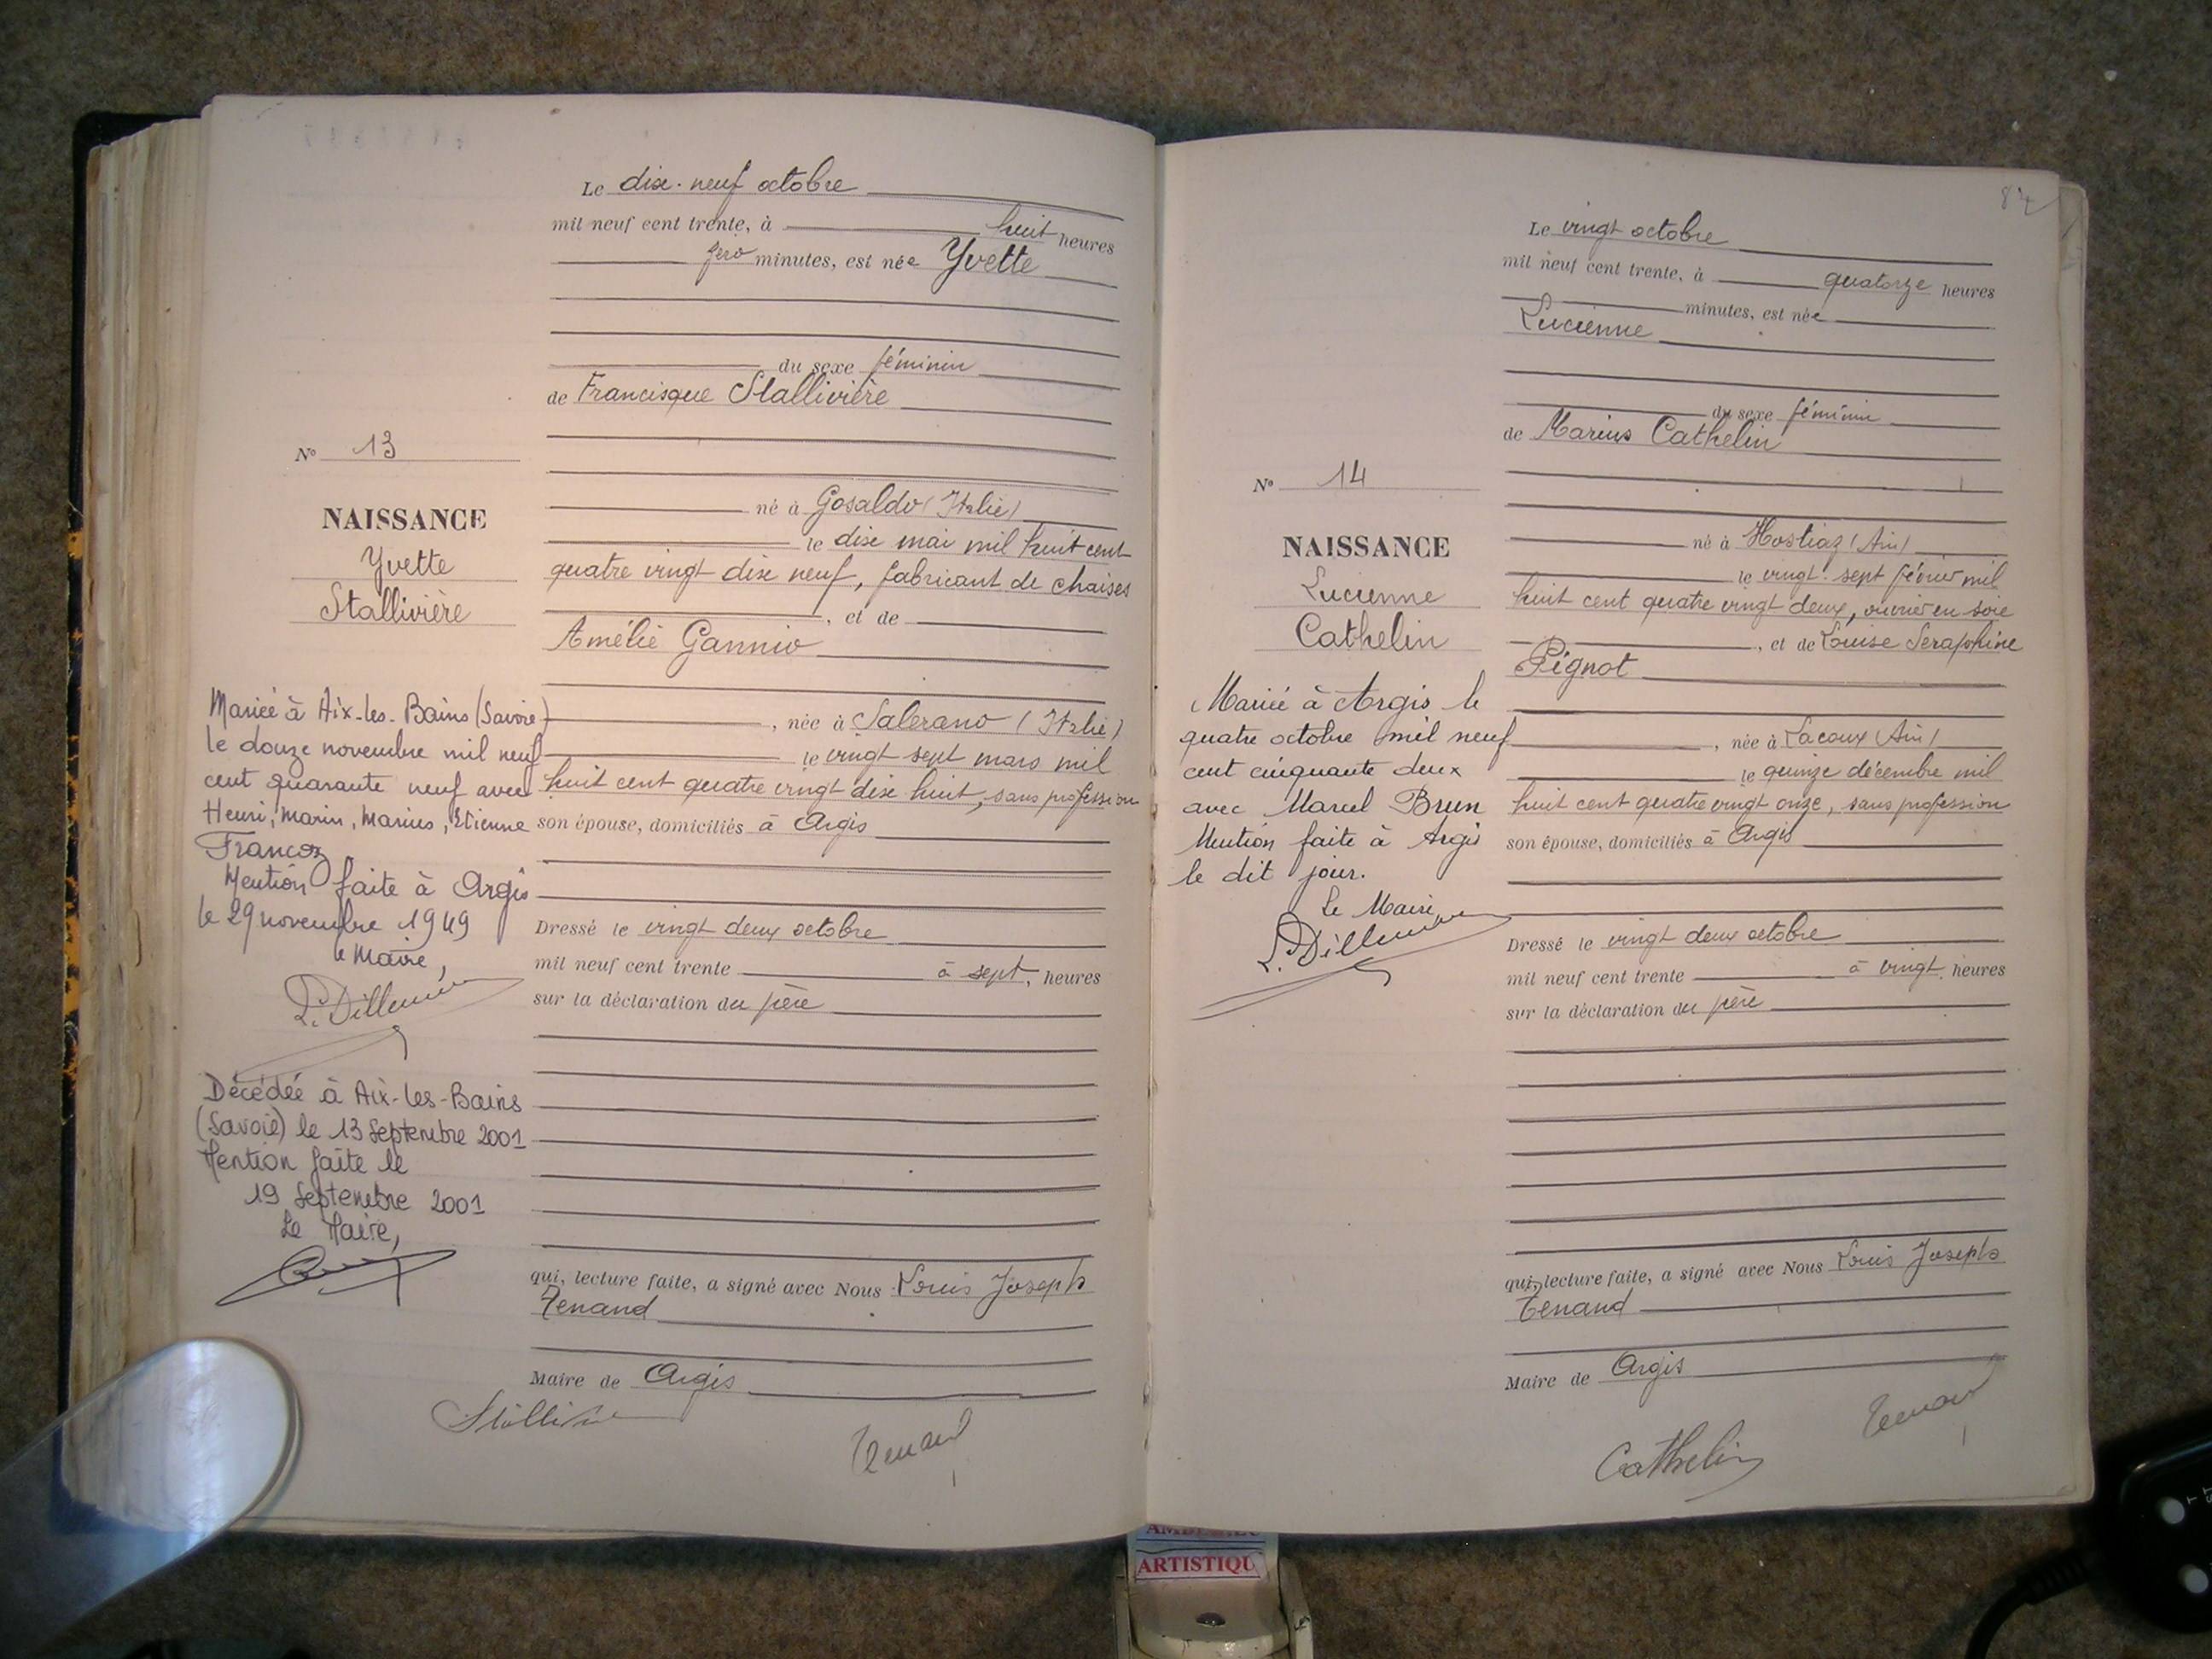 Le dix-neuf octobre
mil neuf cent trente, à huit heures
zéro minutes, est née Yvette
du sexe féminin
de Francisque Stallivière
né à Gosaldo (Italie)
le dix mai mil huit cent
quatre vingt dix neuf, fabricant de chaises
, et de
Amélie Gannio
, née à Salerano (Italie)
le vingt sept mars mil
huit cent quatre vingt dix huit, sans profession
son épouse, domiciliés à Argis
Dressé le vingt deux octobre
mil neuf cent trente à sept, heures
sur la déclaration du père
qui, lecture faite, a signé avec Nous Louis Joseph
Tenand
Maire de Argis
Tenand
No 13
NAISSANCE
Yvette
Stallivière
Mariée à Aix-les-Bains (Savoie)
le douze novembre mil neuf
cent quarante neuf avec
Henri, Marin, Marius, Etienne
Francoz
Mention faite à Argis
le 29 novembre 1949
le Maire,
Décédée à Aix-les-Bains
(Savoie) le 13 Septembre 2001
Mention faite le
19 Septembre 2001
Le Maire,
Le vingt octobre
mil neuf cent trente, à quatorze heures
minutes, est née
Lucienne
du sexe féminin
de Marius Cathelin
né à Hostiaz (Ain)
le vingt-sept février mil
huit cent quatre vingt deux, ouvrier en soie
, et de Louise Seraphine
Pignot
, née à Lacoux (Ain)
le quinze décembre mil
huit cent quatre vingt onze, sans profession
son épouse, domiciliés à Argis
Dressé le vingt deux octobre
mil neuf cent trente à vingt, heures
sur la déclaration du père
qui, lecture faite, a signé avec Nous Louis Joseph
Tenand
Maire de Argis
Tenand
Cathelin
No 14
NAISSANCE
Lucienne
Cathelin
Mariée à Argis le
quatre octobre mil neuf
cent cinquante deux
avec Marcel Brun
Mention faite à Argis
le dit jour.
Le Maire
ARTISTIQU